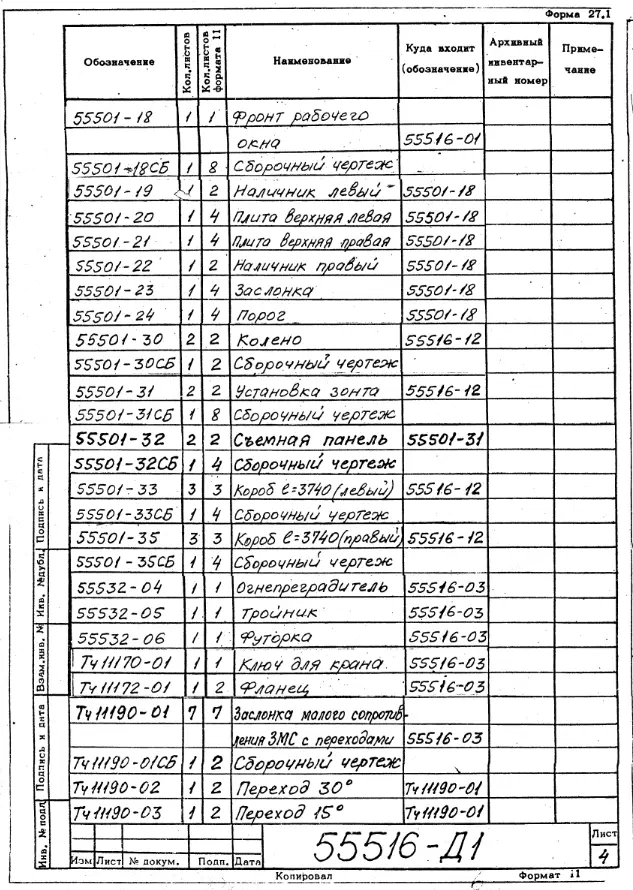 Форма 27.1
Обозначение Кол.листов Кол.листов формата 11 Наименование Куда входит (обозначение) Архивный инвентарный номер Примечание
55501-18 1 1 Фронт рабочего
окна 55516-01
55501-18СБ 1 8 Сборочный чертеж
55501-19 1 2 Наличник левый 55501-18
55501-20 1 4 Плита верхняя левая 55501-18
55501-21 1 4 Плита верхняя правая 55501-18
55501-22 1 2 Наличник правый 55501-18
55501-23 1 4 Заслонка 55501-18
55501-24 1 4 Порог 55501-18
55501-30 2 2 Колено 55516-12
55501-30СБ 1 2 Сборочный чертеж
55501-31 2 2 Установка зонта 55516-12
55501-31СБ 1 8 Сборочный чертеж
55501-32 2 2 Съемная панель 55501-31
55501-32СБ 1 4 Сборочный чертеж
55501-33 3 3 Короб ℓ=3740 (левый) 55516-12
55501-33СБ 1 4 Сборочный чертеж
55501-35 3 3 Короб ℓ=3740 (правый) 55516-12
55501-35СБ 1 4 Сборочный чертеж
55532-04 1 1 Огнепреградитель 55516-03
55532-05 1 1 Тройник 55516-03
55532-06 1 1 Футорка 55516-03
ТЧ11170-01 1 1 Ключ для крана 55516-03
ТЧ11172-01 1 2 Фланец 55516-03
ТЧ11190-01 7 7 Заслонка малого сопротив-
ления ЗМС с переходами 55516-03
ТЧ11190-01СБ 1 2 Сборочный чертеж
ТЧ11190-02 1 2 Переход 30° ТЧ11190-01
ТЧ11190-03 1 2 Переход 15° ТЧ11190-01
Подпись и дата
Инв. №дубл.
Взам.инв. №
Подпись и дата
Инв. №подл.
Изм Лист № докум. Подп. Дата
55516-Д1
Лист
4
Копировал Формат 11